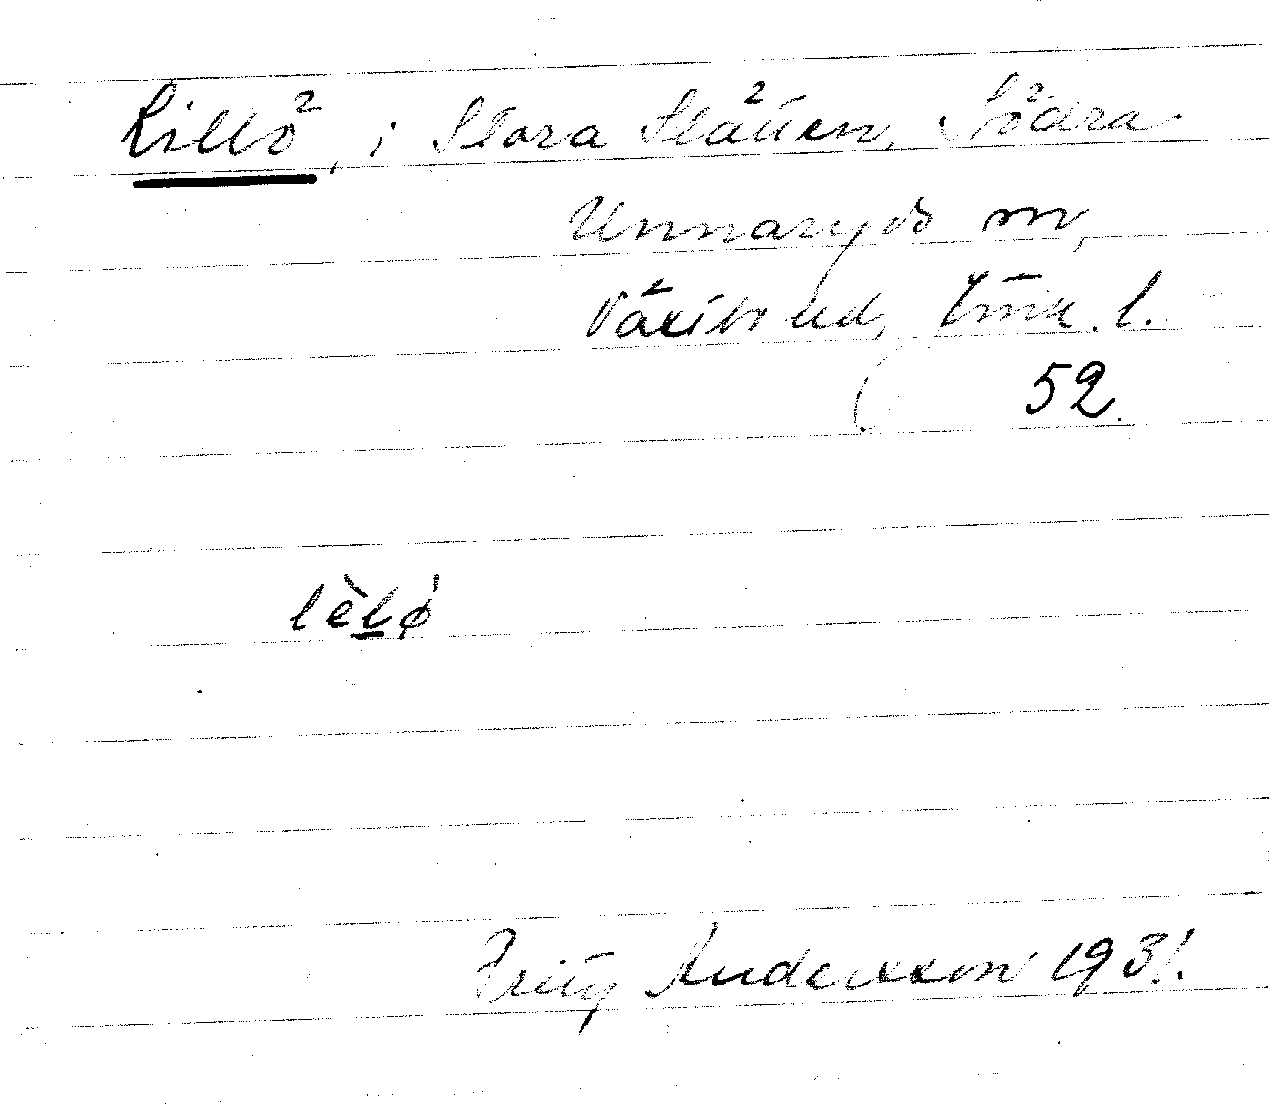 Lillö, i Stora Slätten, Södra
Unnaryds sn,
Västbo hd, Jönk. l.
52.
lèlø
Fritz Andersson 1931.